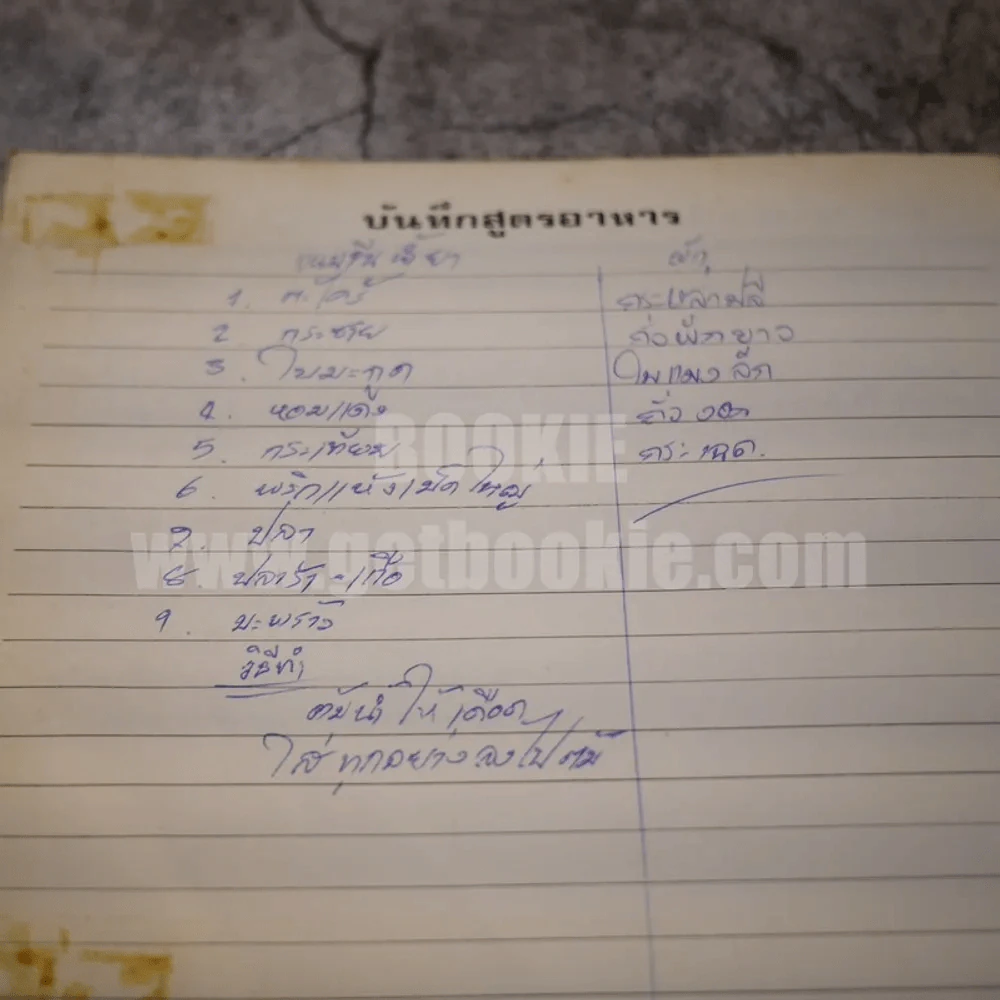 บันทึกสูตรอาหาร
ผัก
1. ตะไคร้
กระหล่ำปลี
2 กระชาย
ถั่วฝักยาว
3. ใบมะกูด
ใบแมงลัก
4. หอมแดง
ถั่วงอก
5. กระเทียม
กระเฉด.
6. พริกแห้งเม็ดใหญ่
7. ปลา
8. ปลาร้า - เกลือ
9. มะพร้าว
วิธีทำ
ต้มน้ำให้เดือด
ใส่ทุกอย่างลงไปต้ม
BOOKIE
www.getbookie.com